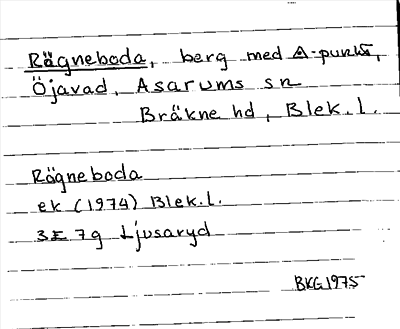 Rägneboda, berg med Δ-punkt,
Öjavad, Asarums sn
Bräkne hd, Blek.l.
Rögneboda
ek (1974) Blek.l.
3E 7g Ljusaryd
BKG 1975